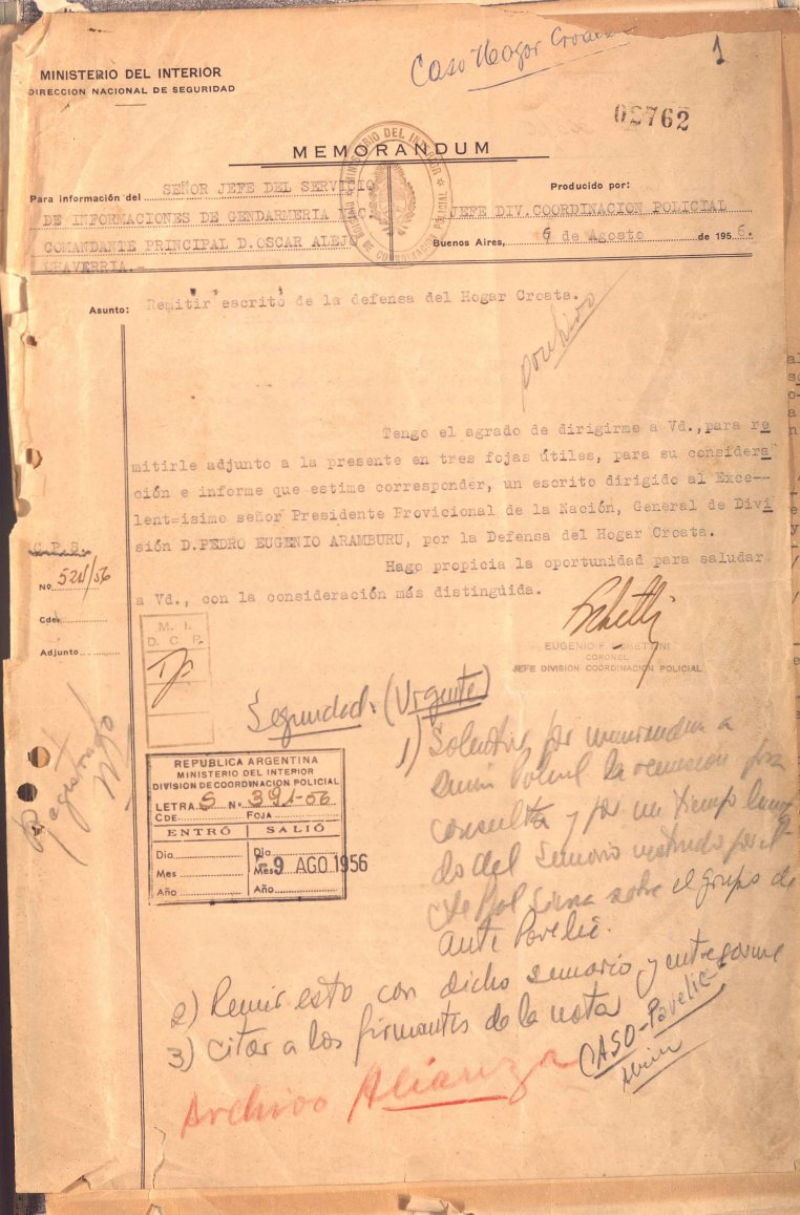 Caso Hogar Croata
1
MINISTERIO DEL INTERIOR
DIRECCION NACIONAL DE SEGURIDAD
02762
MEMORANDUM
Para información del SEÑOR JEFE DEL SERVICIO
DE INFORMACIONES DE GENDARMERIA NAC.
COMANDANTE PRINCIPAL D.OSCAR ALEJO
CHAVERRIA.-
Producido por:
JEFE DIV.COORDINACION POLICIAL
Buenos Aires, 6 de Agosto de 1956.
MINISTERIO DEL INTERIOR
DE COORDINACION POLICIAL
Asunto: Remitir escrito de la defensa del Hogar Croata.
Tengo el agrado de dirigirme a Vd.,para re
mitirle adjunto a la presente en tres fojas útiles, para su considera
ción e informe que estime corresponder, un escrito dirigido al Exce--
lentísimo señor Presidente Provicional de la Nación, General de Divi
sión D.PEDRO EUGENIO ARAMBURU, por la Defensa del Hogar Croata.
Hago propicia la oportunidad para saludar
a Vd., con la consideración más distinguida.
Nº 521/56
Cde.
Adjunto
M. I.
D. C. P.
CORONEL
JEFE DIVISION COORDINACION POLICIAL
Seguridad: (Urgente)
1) Solicitar por memorandum a
la remisión para
consulta y por un tiempo
do del sumario
sobre el grupo de
Ante Pavelic.
2) Reunir esto con dicho sumario y entregarme
3) Citar a los firmantes de la nota
CASO-Pavelic-
Archivo Alianza
REPUBLICA ARGENTINA
MINISTERIO DEL INTERIOR
DIVISION DE COORDINACION POLICIAL
LETRA S N. 391-56
CDE. FOJA
ENTRÓ SALIÓ
Dia Dia
Mes Mes 9 AGO 1956
Año Año